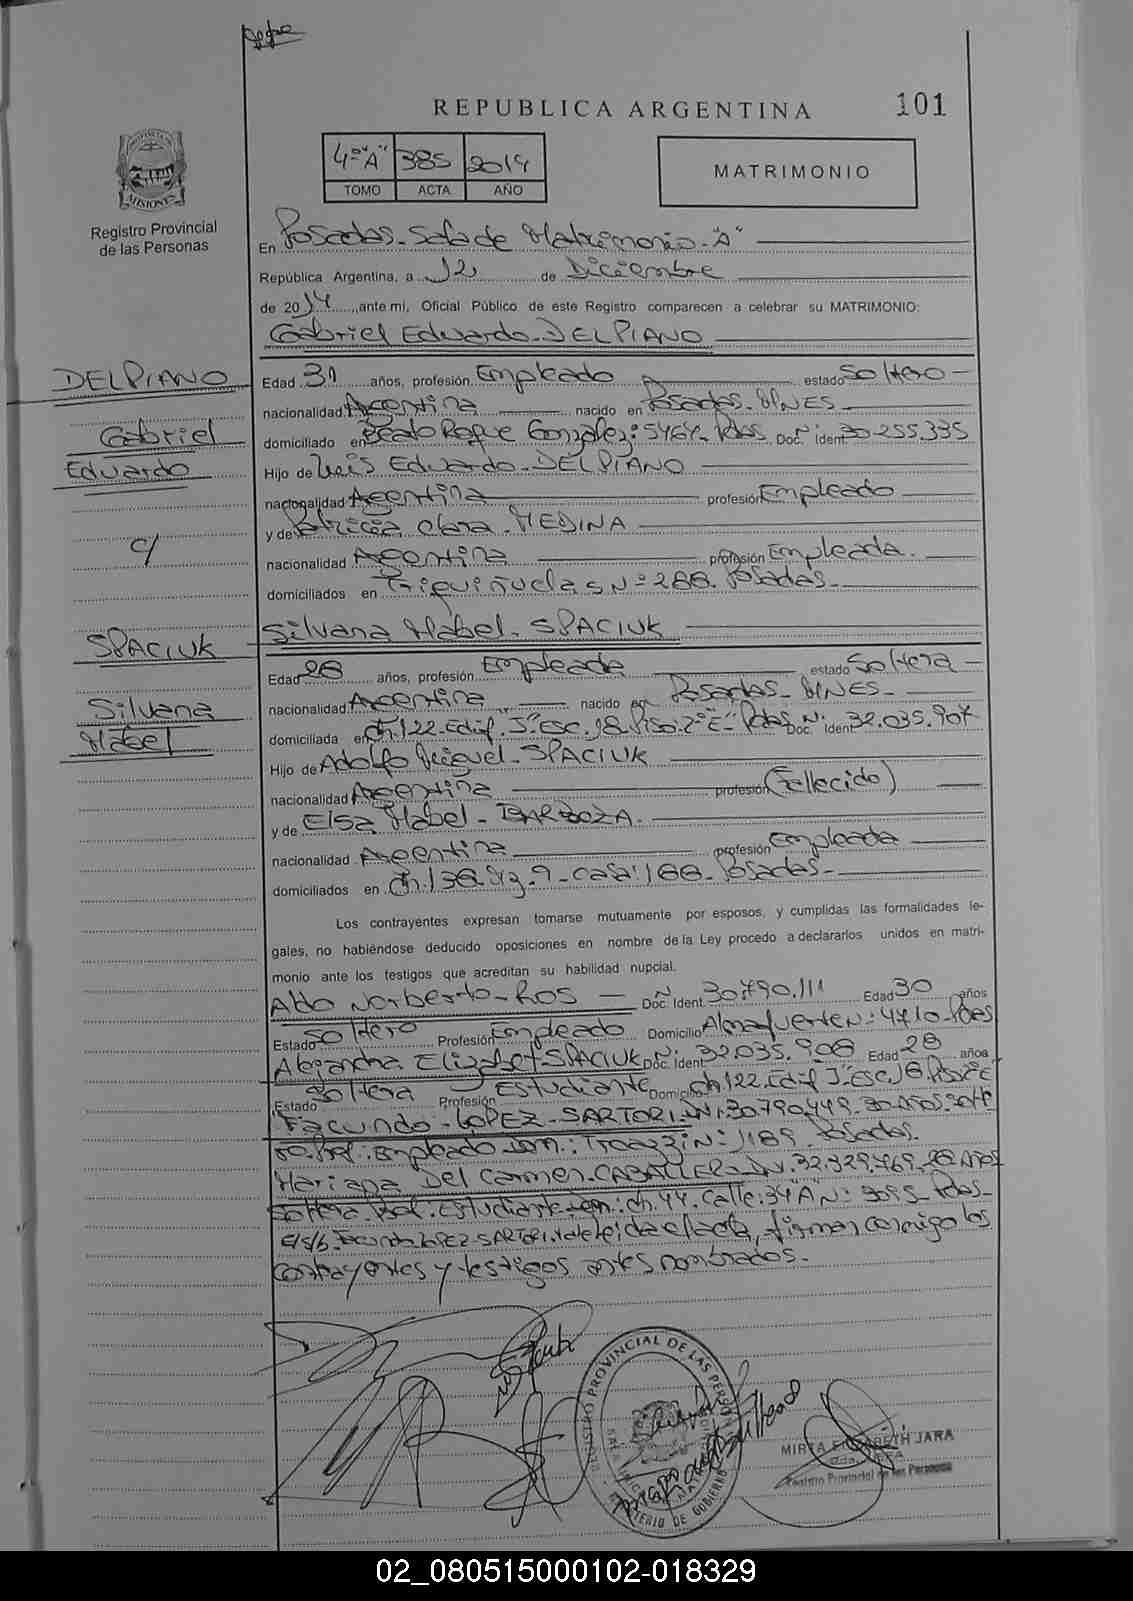 REPUBLICA ARGENTINA 101
4º "A" 385 2014
TOMO ACTA AÑO
MATRIMONIO
MISIONES
Registro Provincial
de las Personas
En Posadas - Sala de Matrimonio - "A"
República Argentina, a 12 de Diciembre
de 2014, ante mi, Oficial Público de este Registro comparecen a celebrar su MATRIMONIO:
Gabriel Eduardo - DELPIANO
DELPIANO
Gabriel
Eduardo
c/
SPACIUK
Silvana
Mabel
Edad 31 años, profesión Empleado estado Soltero -
nacionalidad Argentina nacido en Posadas - MNES
domiciliado en Beato Roque González: 5464 - Pdas. Doc. Nº Ident 30.255.335
Hijo de Luis Eduardo - DELPIANO
nacionalidad Argentina profesión Empleado
y de Patricia Clara - MEDINA
nacionalidad Argentina profesión Empleada.
domiciliados en Triguiñuelas Nº 288 - Posadas -
Silvana Mabel - SPACIUK
Edad 28 años, profesión Empleada estado Soltera -
nacionalidad Argentina nacido en Posadas - MNES -
domiciliada en Ch.122. Edif. J. Esc. 18. Piso. 2º E" Pdas Doc. Nº Ident 32.035.907
Hijo de Adolfo Miguel - SPACIUK
nacionalidad Argentina profesión (Fallecido)
y de Elsa Mabel - BARBOZA.
nacionalidad Argentina profesión Empleada
domiciliados en Ch. 138. 9 - Casa: 188 - Posadas -
Los contrayentes expresan tomarse mutuamente por esposos, y cumplidas las formalidades le-
gales, no habiéndose deducido oposiciones en nombre de la Ley procedo a declararlos unidos en matri-
monio ante los testigos que acreditan su habilidad nupcial.
Aldo Norberto - ROS - Doc. Nº Ident. 30.790.111 Edad 30 años
Estado Soltero Profesión Empleado Domicilio Almafuerte Nº: 4710 - Pdas
Alejandra Elizabet - SPACIUK Doc. Nº Ident 32.035.908 Edad 28 años
Estado Soltera Profesión Estudiante Domicilio Ch.122. Edif J. Esc. 18. Piso 2º E
Facundo - LOPEZ - SARTORI. DNI. 30.790.449 - 30 años. Solte
ro. Prof.: Empleado - Dom.: Nº: 1189 - Posadas.
Mariana Del Carmen - CABALLERO - DNI. 32.329.769 - 28 Años
Soltera. Prof.: Estudiante - Dom.: Ch. 44. Calle: 34 "A" Nº: 3095 - Pdas -
E/s/b. Facundo LOPEZ SARTORI. Vale. Leída el acta, firman conmigo los
contrayentes y testigos antes nombrados. -
REGISTRO PROVINCIAL DE LAS PERSONAS
MINISTERIO DE GOBIERNO
MIRTA ELIZABETH JARA
Registro Provincial de las Personas
02_080515000102-018329